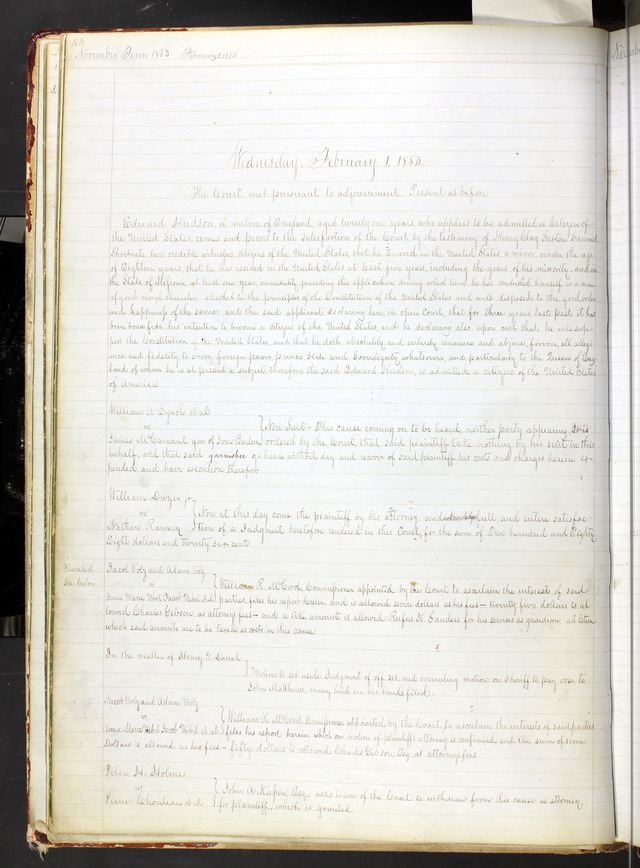 44
November Term 1853. February 1. 1854.
Wednesday. February 1. 1854.
The Court met pursuant to adjournment Present as before
Edward Hudson, a native of England, aged twenty one years, who applies to be admitted a Citizen of
the United States, comes and proves to the satisfaction of the Court by the testimony of Henry Clay Samuel
two credible witnesses, citizens of the United States, that he arrived in the United States a minor, under the age
of Eighteen years, that he has resided in the United States at least five years, including the years of his minority, and in
the State of Missouri, at least one year, immediately preceding this application, during which time he has conducted himself as a man
of good moral character, attached to the principles of the Constitution of the United States and well disposed to the good order
and happiness of the same: and the said applicant declaring here in open Court, that for three years last past it has
been bona fide, his intention to become a citizen of the United States, and he declaring also upon oath that he will sup-
port the Constitution of the United States, and that he doth absolutely and entirely renounce and abjure, forever, all allegi-
ance and fidelity to every foreign power, prince, State and Sovereignty whatsoever, and particularly to the Queen of Eng-
land of whom he is at present a subject, therefore the said Edward Hudson, is admitted a citizen of the United States
of America
William A Lynch et al
vs
} Non Suit.- This cause coming on to be heard neither party appearing, It is
James McCamant gar of ordered by the Court, that said plaintiff take nothing by his suit in this
behalf, and that said garnishee go hence without day and recover of said plaintiff his costs and charges herein ex-
pended, and have execution therefor.
William Dwyer jr
vs
} Now at this day come the plaintiff by his attorney and acknowledge full and entire satisfac-
Nathan Ranney tion of a Judgment heretofore rendered in this Court, for the sum of Two hundred and Eighty
Eight dollars and twenty six cents
Vacated
See below
Jacob Volz and Adam Volz
vs
} William R. McCord, Commissioner appointed by the Court to ascertain the interests of said
Anna Maria Jacob et al parties, files his report herein, and is allowed seven dollars as his fees - twenty five dollars is al
lowed Charles Gibson, as attorneys fees - and a like amount is allowed Rufus K. Sanders for his services as guardian ad litem
which said amounts are to be taxed as costs in this cause
In the matter of Henry D.
} Motion to set aside Judgment of off set, and overruling motion on Sheriff to pay over to
John Matthews, money held in his hands filed.
Jacob Volz and Adam Volz
vs
} William R. McCord Commissioner appointed by the Court to ascertain the interests of said parties
Anna Maria Jacob et al files his report herein which on motion of plaintiffs attorney is confirmed and the sum of seven
Dollars is allowed as his fees - fifty dollars is allowed Charles Gibson Esq. as attorneys fees.
Peter H. Holme
vs
} John A. Kasson, Esq., asks leave of the Court to withdraw from this cause as attorney
Pierre Chouteau et al for plaintiff, which is granted